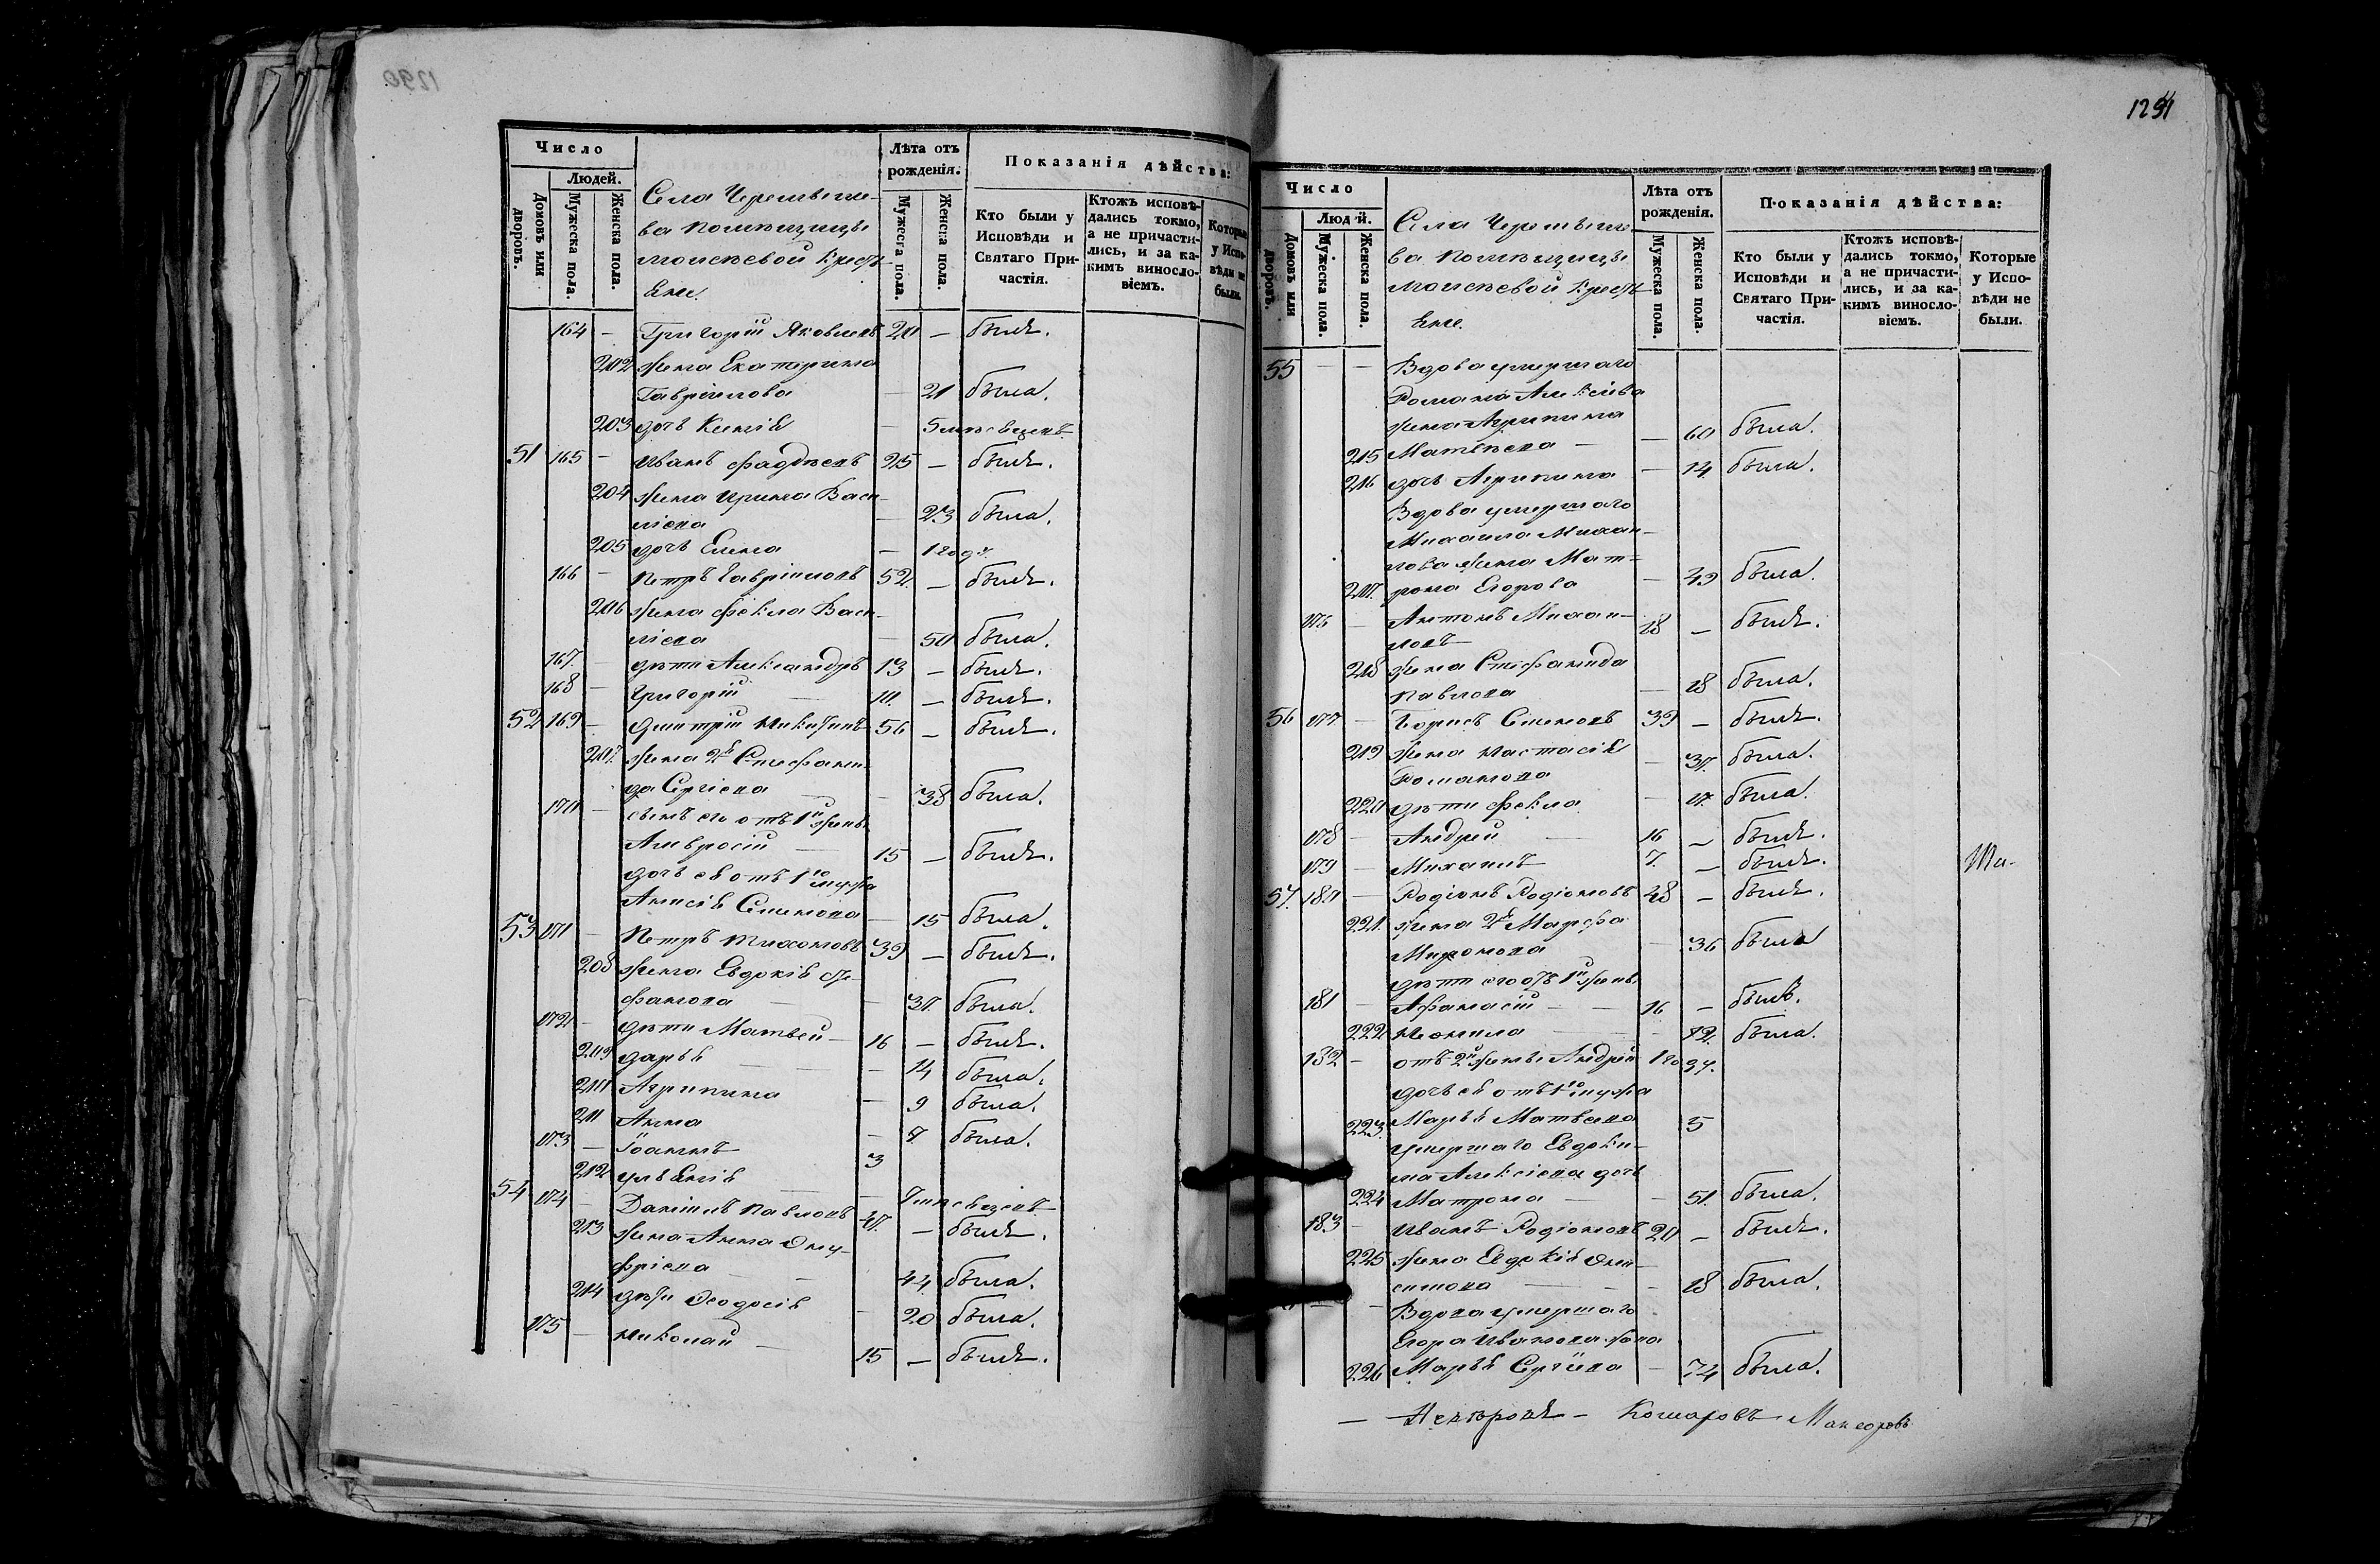 1290
Число
Людей.
Домовъ или дворовъ.
Мужеска пола.
Женска пола.
Села
ва помѣщицы
Моисѣевой Крестья
Лѣта отъ рожденія.
Мужеска пола.
Женска пола.
Показанія дѣйства:
Кто были у Исповѣди и Святаго Причастія.
Ктожъ исповѣдались токмо, а не причастились, и за какимъ винословіемъ.
Которые у Исповѣди не были.
164 — Григорій Яковлевъ 20 — былъ.
202 жена Екатерина
Гавріилова — 21 была.
203 дочь Ксенія — 5
51 165 — Иванъ Фадѣевъ 25 — былъ.
204 жена Ирина Васи-
ліева — 23 была.
205 дочь Елена — 1 годъ.
166 — Петръ Гавріиловъ 52 — былъ.
206 жена Фекла Васи-
ліева — 50 была.
167 — дѣти Александръ 13 — былъ.
168 — Григорій — 10. — былъ.
52 169 — Дмитрій Никитинъ 56 — былъ.
207. жена 2я Стефани-
да Сергіева — 38 была.
170 — сынъ его отъ 1й жены
Амвросій — 15 — былъ.
дочь ея отъ 1го мужа
Анисія Семенова — 15 была.
53 171 — Петръ Тихоновъ 39 — былъ.
208 жена Евдокія
фанова — 37. была.
172 — дѣти Матвей — 16 — былъ.
209 Дарья — 14 была.
210 Агрипина — 9 была.
211 Анна — 7 была.
173 — Іоаннъ 3
212 Ульянія —
54 174 — Даніилъ Павловъ 47. — былъ.
213 жена Анна Ону-
фріева — 44. была.
214 дѣти Ѳеодосія — 20 была.
175 — Николай — 15 — былъ.
1291
Число
Людей.
Домовъ или дворовъ.
Мужеска пола.
Женска пола.
Села
ва помѣщицы
Моисѣевой Крестья
Лѣта отъ рожденія.
Мужеска пола.
Женска пола.
Показанія дѣйства:
Кто были у Исповѣди и Святаго Причастія.
Ктожъ исповѣдались токмо, а не причастились, и за какимъ винословіемъ.
Которые у Исповѣди не были.
55 — — Вдова умершаго
Романа Алексіева
жена Агрипина
215 Матвѣева — — 60 была.
216 дочь Агрипина — 14. была.
Вдова умершаго
Михаила Михаи-
лова жена Мат-
217. рона Егорова — 49 была.
176 — Антонъ Михаи-
ловъ 18 — былъ.
218 жена Стефанида
Павлова — 18 была.
56 177 — Борисъ Семеновъ 39 — былъ.
219 жена Настасія
Романова — 37. была.
220 дѣти Фекла — 17. была.
178 — Андрей — 16 — былъ.
179 — Михаилъ 7. — былъ.
57. 180 — Родіонъ Родіоновъ 48 — былъ.
221. жена 2я Марфа
Миронова — 36 была
дѣти его отъ 1й жены
181 — Афанасій — — 16 — былъ.
222 Неонила — 12. была.
182 — отъ 2й жены Андрей 1 годъ.
дочь ея отъ 1го мужа
223. Марья Матвеева 5
умершаго Евдоки-
ма Алексіева дочь
224 Матрона — — 51. была.
183 — Иванъ Родіоновъ 20 — былъ.
225 жена Евдокія Они-
симова — — 18 была.
— — Вдова умершаго
Егора Иванова жена
226 Марья Сергіева — 74 была.